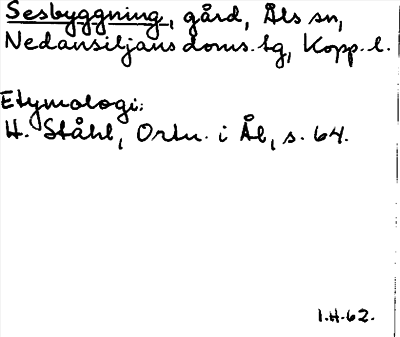 Sesbyggning, gård, Åls sn,
Nedansiljans doms.tg, Kopp. l.
Etymologi:
H. Ståhl, Ortn. i Ål, s. 64.
1.H.62.